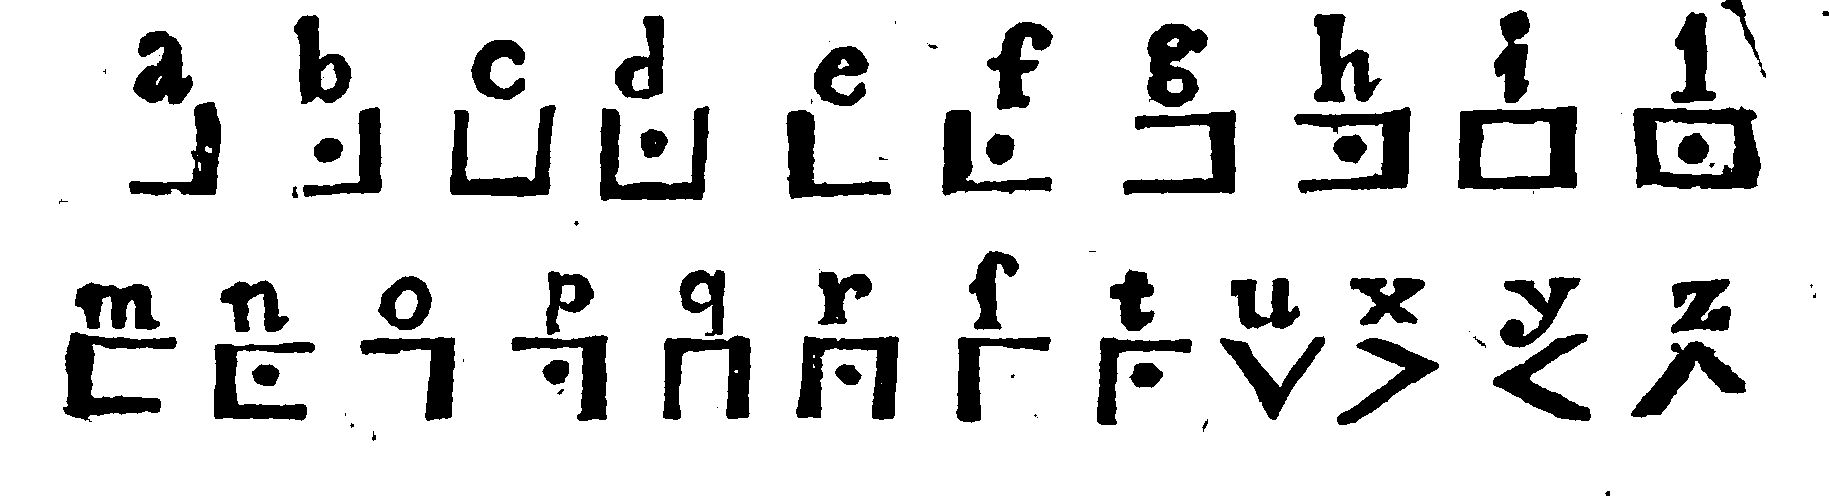 a b c d e f g h i l
m n o p q r ſ t u x y z